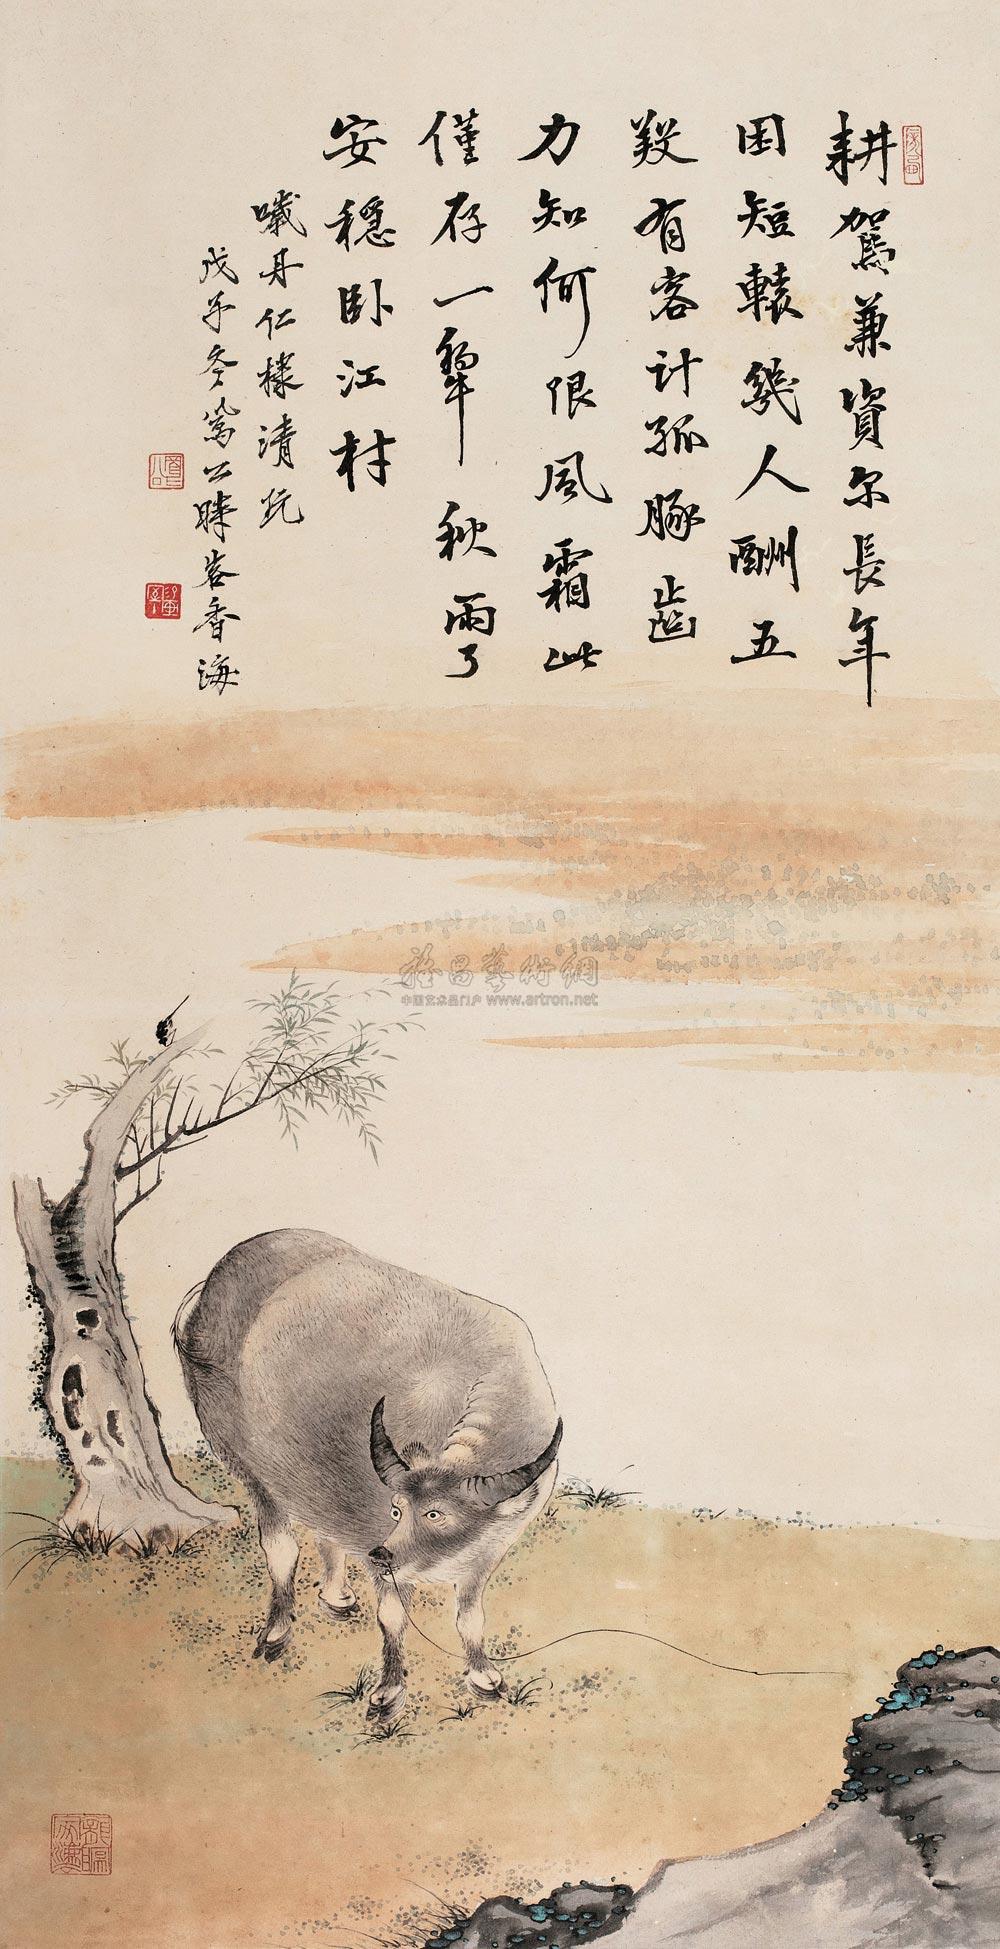 耕駕兼資尔長年
困短轅幾人酬五
羖有客計孤豚齒
力知何限風霜此
僅存一犂秋雨了
安穩卧江村
囐丹仁樣清玩
戊子冬篤公時客香海
雅昌藝術網
中国艺术品门户 www.artron.net